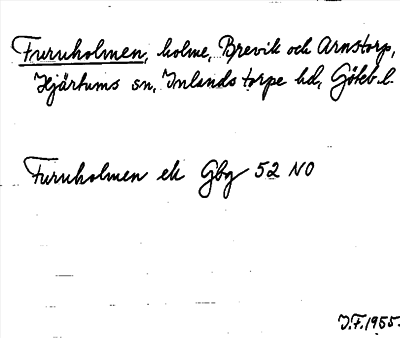 Furuholmen, holme, Brevik och Arnstorp,
Hjärtums sn, Inlands torpe hd, Göteb. l.
Furuholmen ek Gbg 52 NO
J.F. 1955.